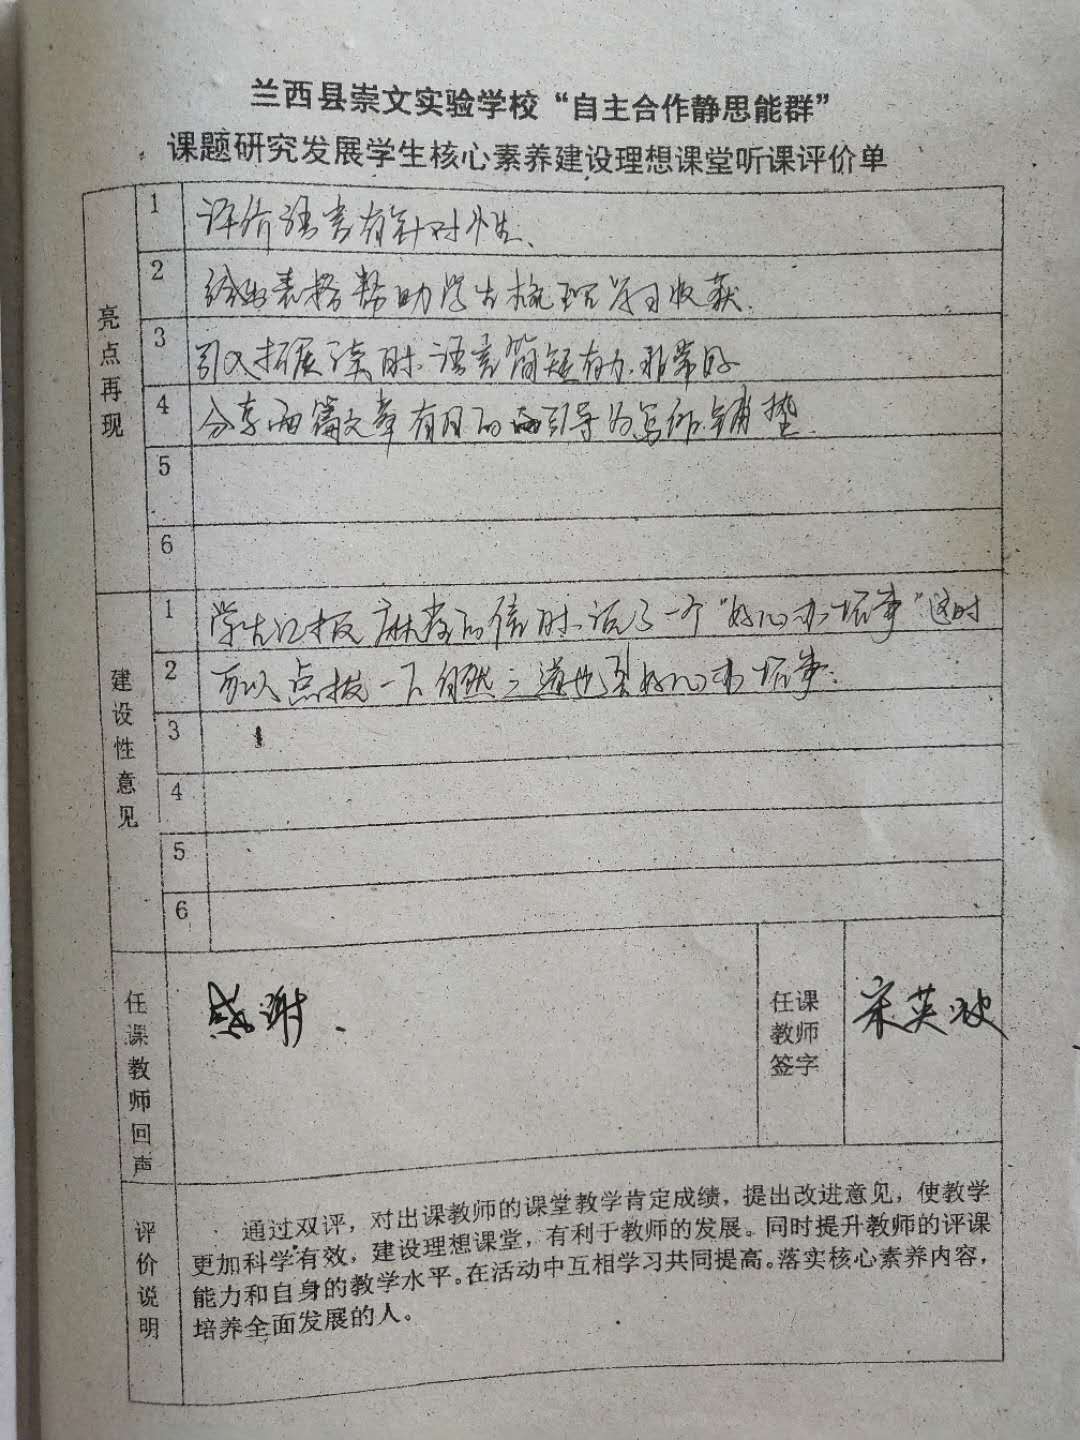 兰西县崇文实验学校“自主合作静思能群”
课题研究发展学生核心素养建设理想课堂听课评价单
亮点再现
1 评价语言有针对性、
2 给出表格帮助学生梳理学习收获.
3 引入拓展读时、语言简短有力、非常好
4 分享两篇文章有目的的引导为写作铺垫.
5
6
建设性意见
1 学生汇报麻雀的信时、说了一个“好心办坏事”这时
2 可以点拨一下自然之道也是好心办坏事.
3
4
5
6
任课教师回声
感谢.
任课
教师
签字
宋英波
评价说明
通过双评，对出课教师的课堂教学肯定成绩，提出改进意见，使教学
更加科学有效，建设理想课堂，有利于教师的发展。同时提升教师的评课
能力和自身的教学水平。在活动中互相学习共同提高。落实核心素养内容，
培养全面发展的人。